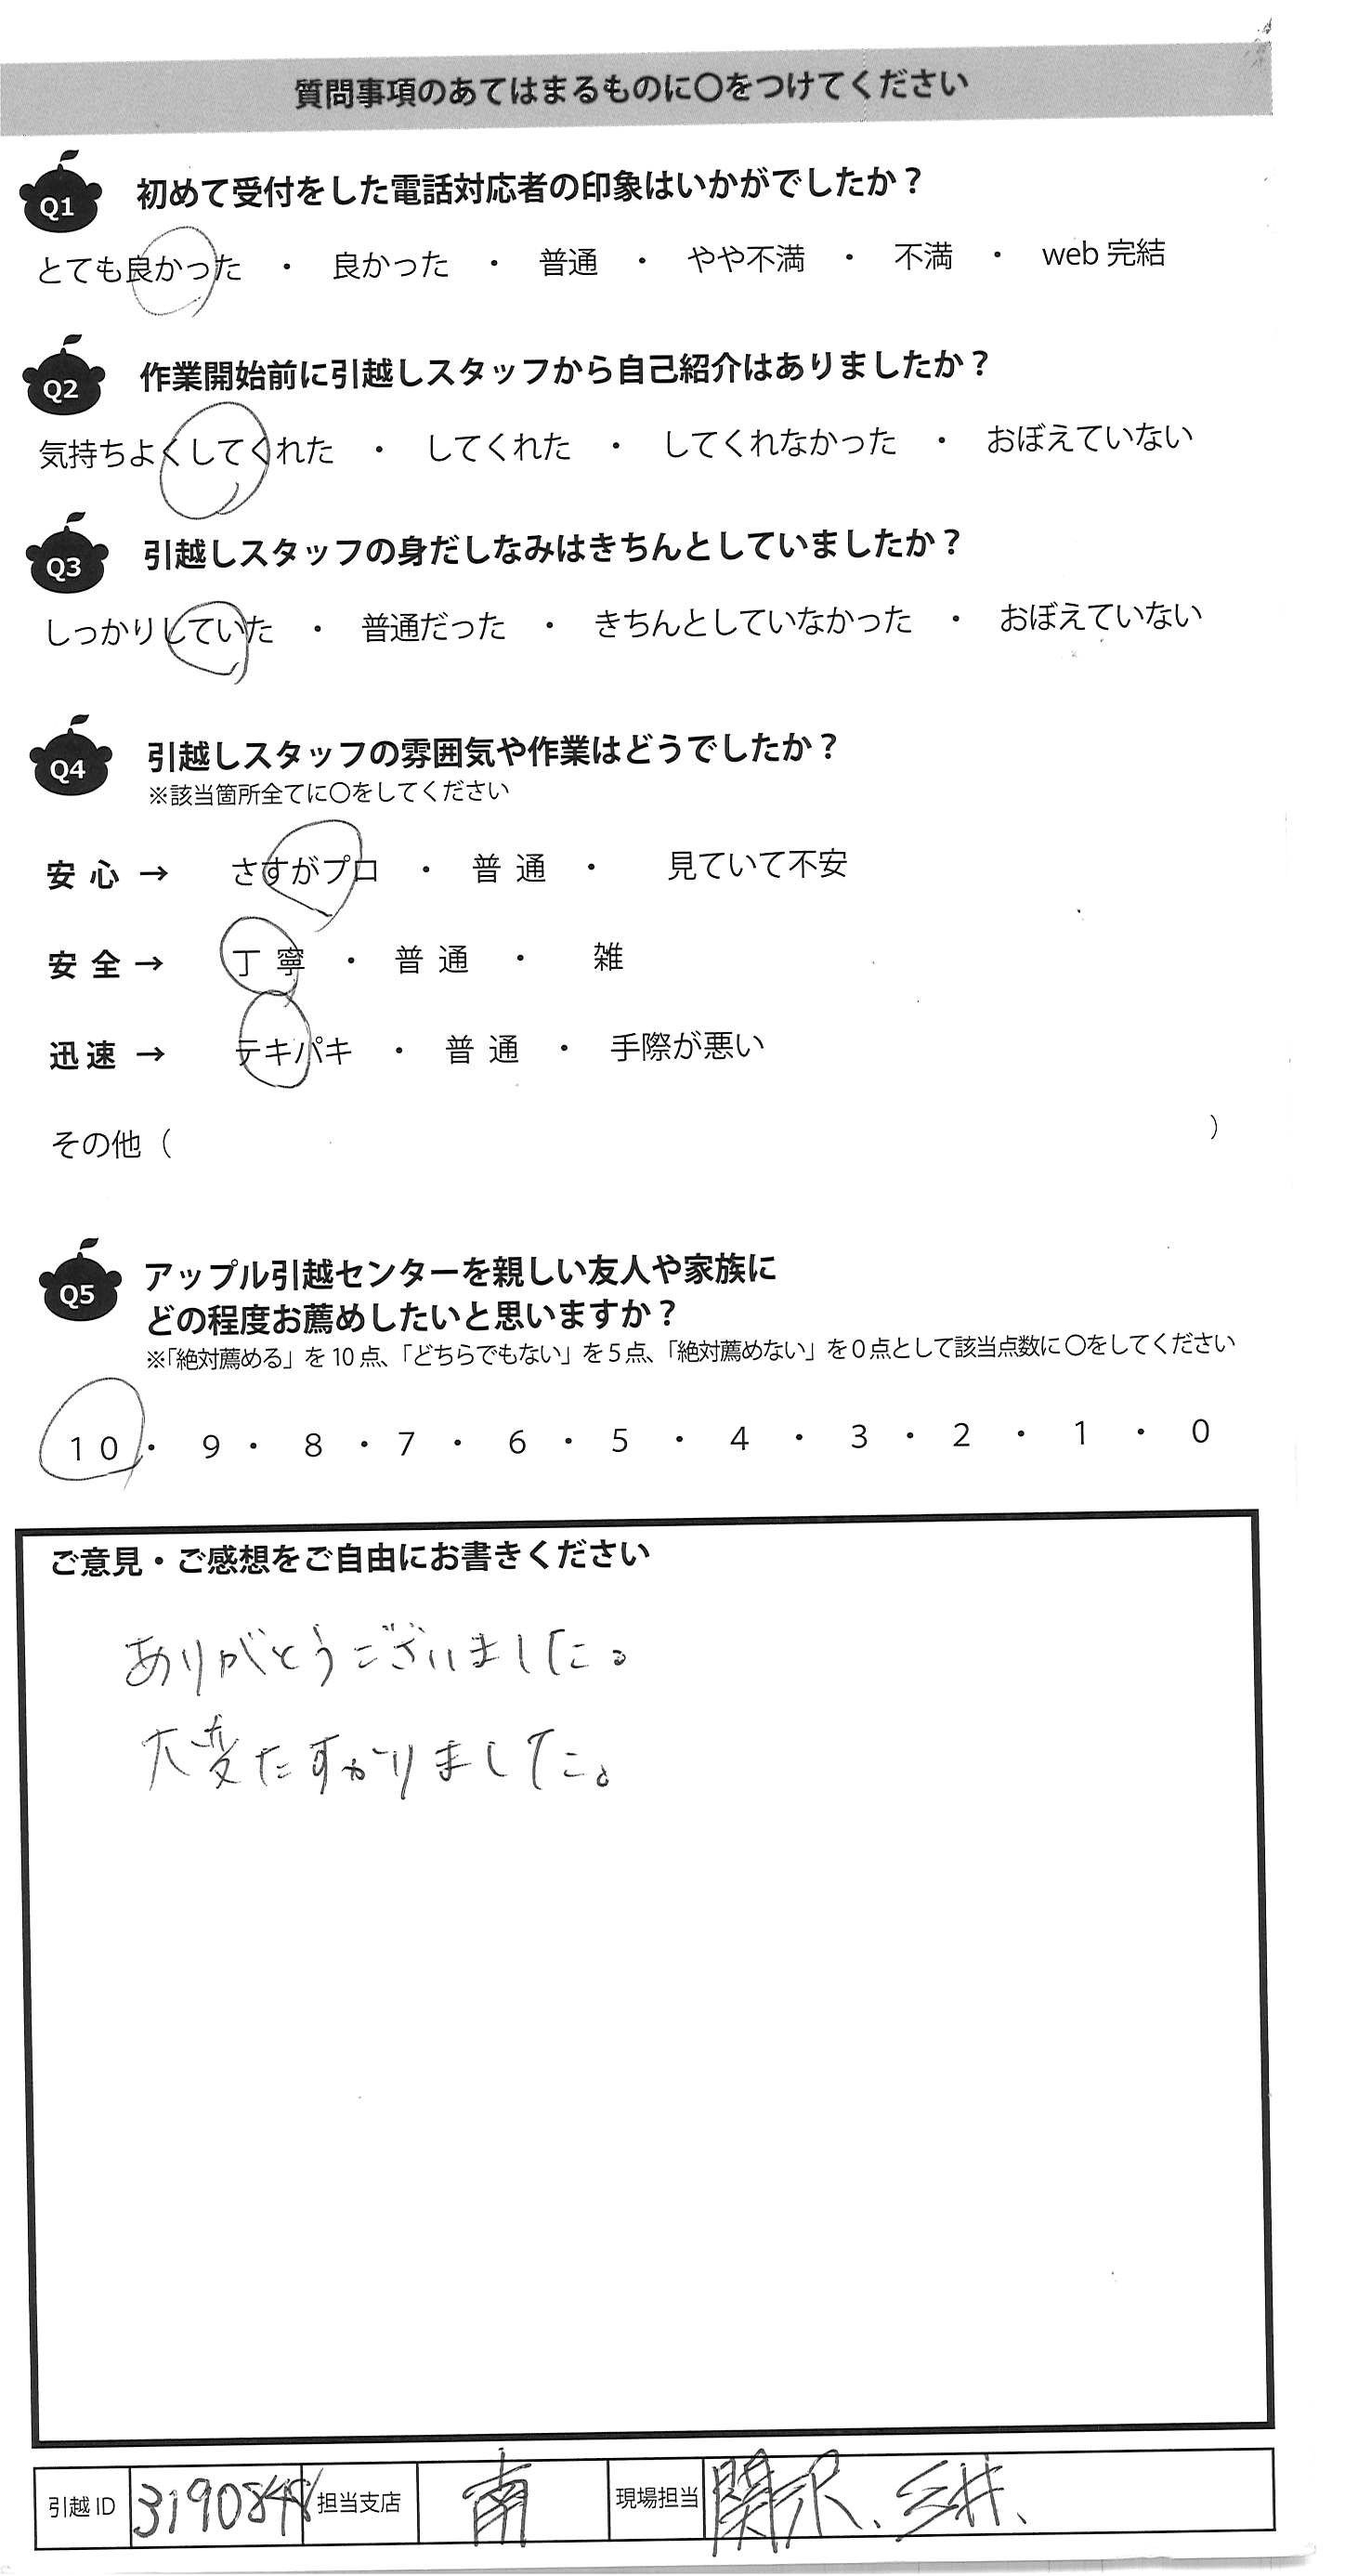 質問事項のあてはまるものに〇をつけてください
Q1 初めて受付をした電話対応者の印象はいかがでしたか？
とても良かった ・ 良かった ・ 普通 ・ やや不満 ・ 不満 ・ web 完結
Q2 作業開始前に引越しスタッフから自己紹介はありましたか？
気持ちよくしてくれた ・ してくれた ・ してくれなかった ・ おぼえていない
Q3 引越しスタッフの身だしなみはきちんとしていましたか？
しっかりしていた ・ 普通だった ・ きちんとしていなかった ・ おぼえていない
Q4 引越しスタッフの雰囲気や作業はどうでしたか？
※該当箇所全てに〇をしてください
安 心 → さすがプロ ・ 普 通 ・ 見ていて不安
安 全 → 丁 寧 ・ 普 通 ・ 雑
迅 速 → テキパキ ・ 普 通 ・ 手際が悪い
その他（ ）
Q5 アップル引越センターを親しい友人や家族に
どの程度お薦めしたいと思いますか？
※「絶対薦める」を 10 点、「どちらでもない」を 5 点、「絶対薦めない」を 0 点として該当点数に 〇をしてください
10 ・ 9 ・ 8 ・ 7 ・ 6 ・ 5 ・ 4 ・ 3 ・ 2 ・ 1 ・ 0
ご意見・ご感想をご自由にお書きください
ありがとうございました。
大変たすかりました。
引越 ID 3190848 担当支店 南 現場担当 関沢、